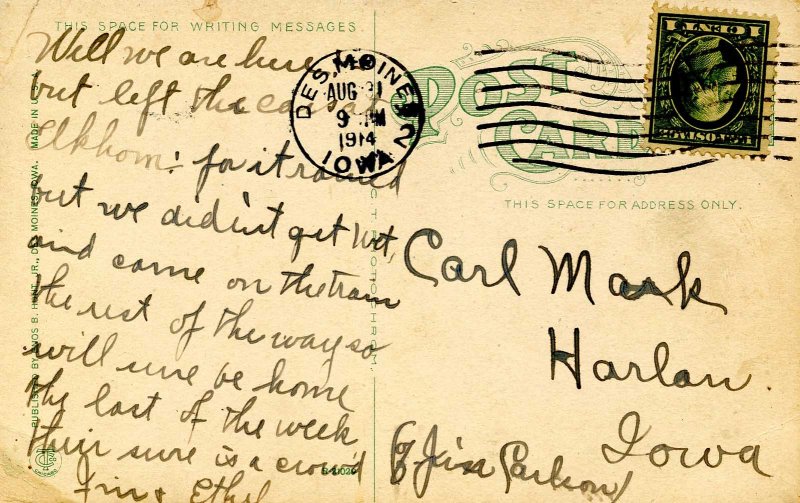 THIS SPACE FOR WRITING MESSAGES.
Well we are here
but left the car at
Elkhorn. for it rained
but we didn't get wet,
and came on the train
the rest of the way so
will sure be home
the last of the week
their sure is a crowd
Jim & Ethel
PUBLISHED BY ENOS B. HUNT, JR., DES MOINES, IOWA. MADE IN U.S.A.
DES MOINES
AUG 31
9 PM
1914
IOWA
2
POST
CARD
THIS SPACE FOR ADDRESS ONLY.
Carl Mark
Harlan.
Iowa
(% Jim Carlson)